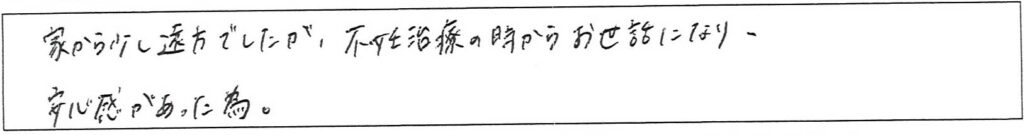 家から少し遠方でしたが、不妊治療の時からお世話になり、
安心感があった為。